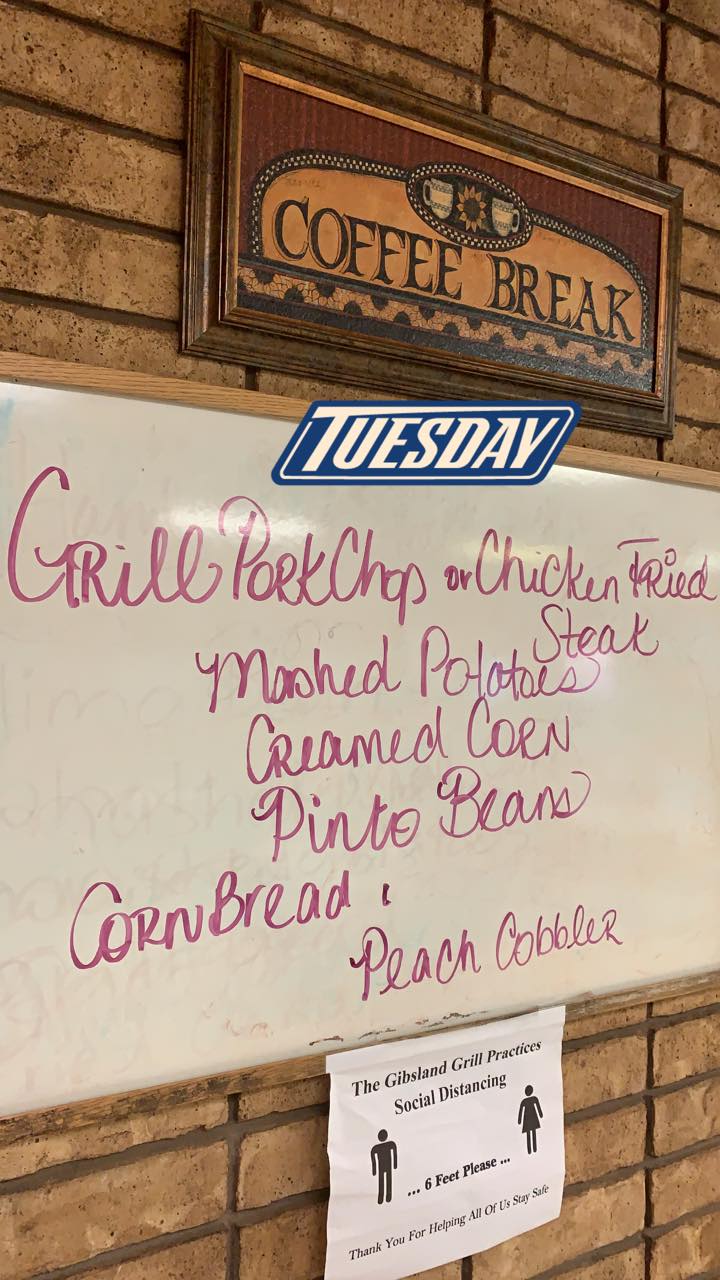 COFFEE BREAK
TUESDAY
Grill Pork Chop or Chicken Fried
Steak
Mashed Potatoes
Creamed Corn
Pinto Beans
CornBread
Peach Cobbler
The Gibsland Grill Practices
Social Distancing
... 6 Feet Please ...
Thank You For Helping All Of Us Stay Safe